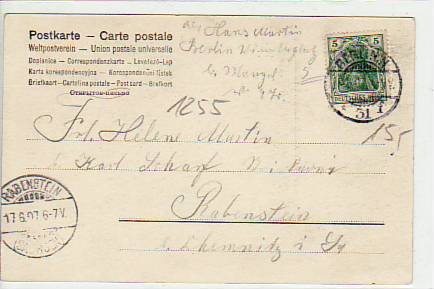 Postkarte - Carte postale
Weltpostverein - Union postale universelle
Dopisnice - Correspondenzkarte - Levelező-Lap
Karta korespondencyjna - Korespondenční lístek
Briefkaart - Cartolina postale - Postcard - Brefkort
Открытое письмо
Hans Martin
Berlin
5 5
BERLIN
DEUTSCHES REICH
31
1255
15,-
Frl. Helene Martin
b. Karl Scharf
Rabenstein
b. Chemnitz i. Sa
RABENSTEIN
17.6.07. 6-7V.